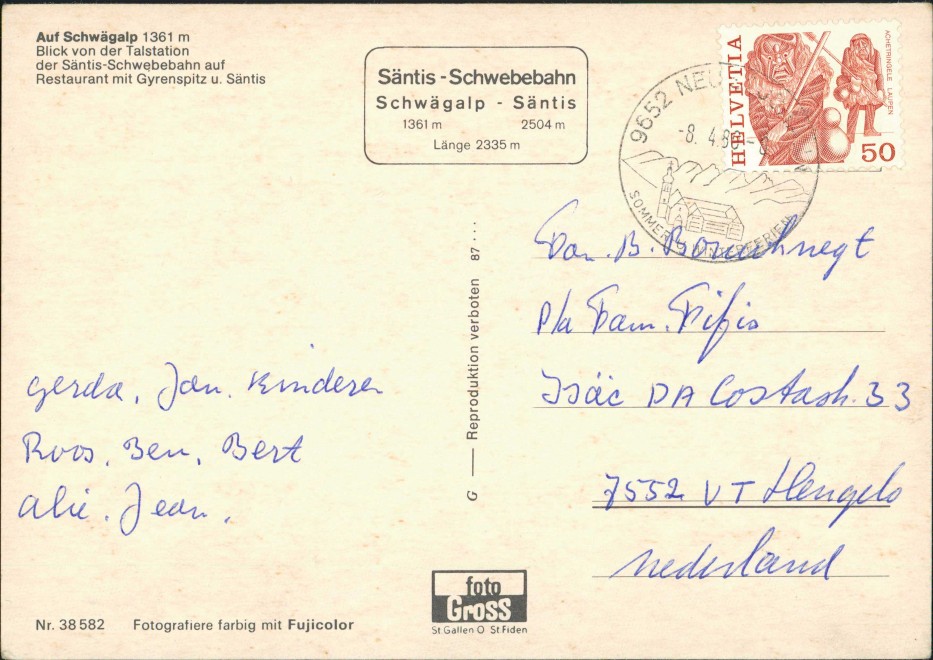 Auf Schwägalp 1361 m
Blick von der Talstation
der Säntis-Schwebebahn auf
Restaurant mit Gyrenspitz u. Säntis
Säntis - Schwebebahn
Schwägalp - Säntis
1361 m 2504 m
Länge 2335 m
HELVETIA
ACHETRINGELE LAUPEN
50
9652 NEU
-8. 4.8
SOMMER
FERIEN
G — Reproduktion verboten 87 ...
Fam. B.
p/a Fam. Fifis
Isäc DA Costash. 33
7552 VT Hengelo
Nederland
Gerda, Jan. Kinderen
Roos, Ben, Bert
Alie. Jean.
foto
Gross
St. Gallen O St. Fiden
Nr. 38 582 Fotografiere farbig mit Fujicolor